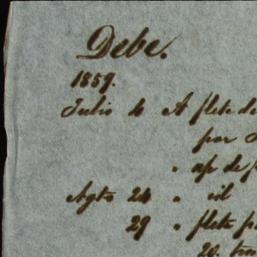 Debe.
1859.
Julio 4 A flete de
por
" up de
Agto 24 " id
29 " flete p
20.